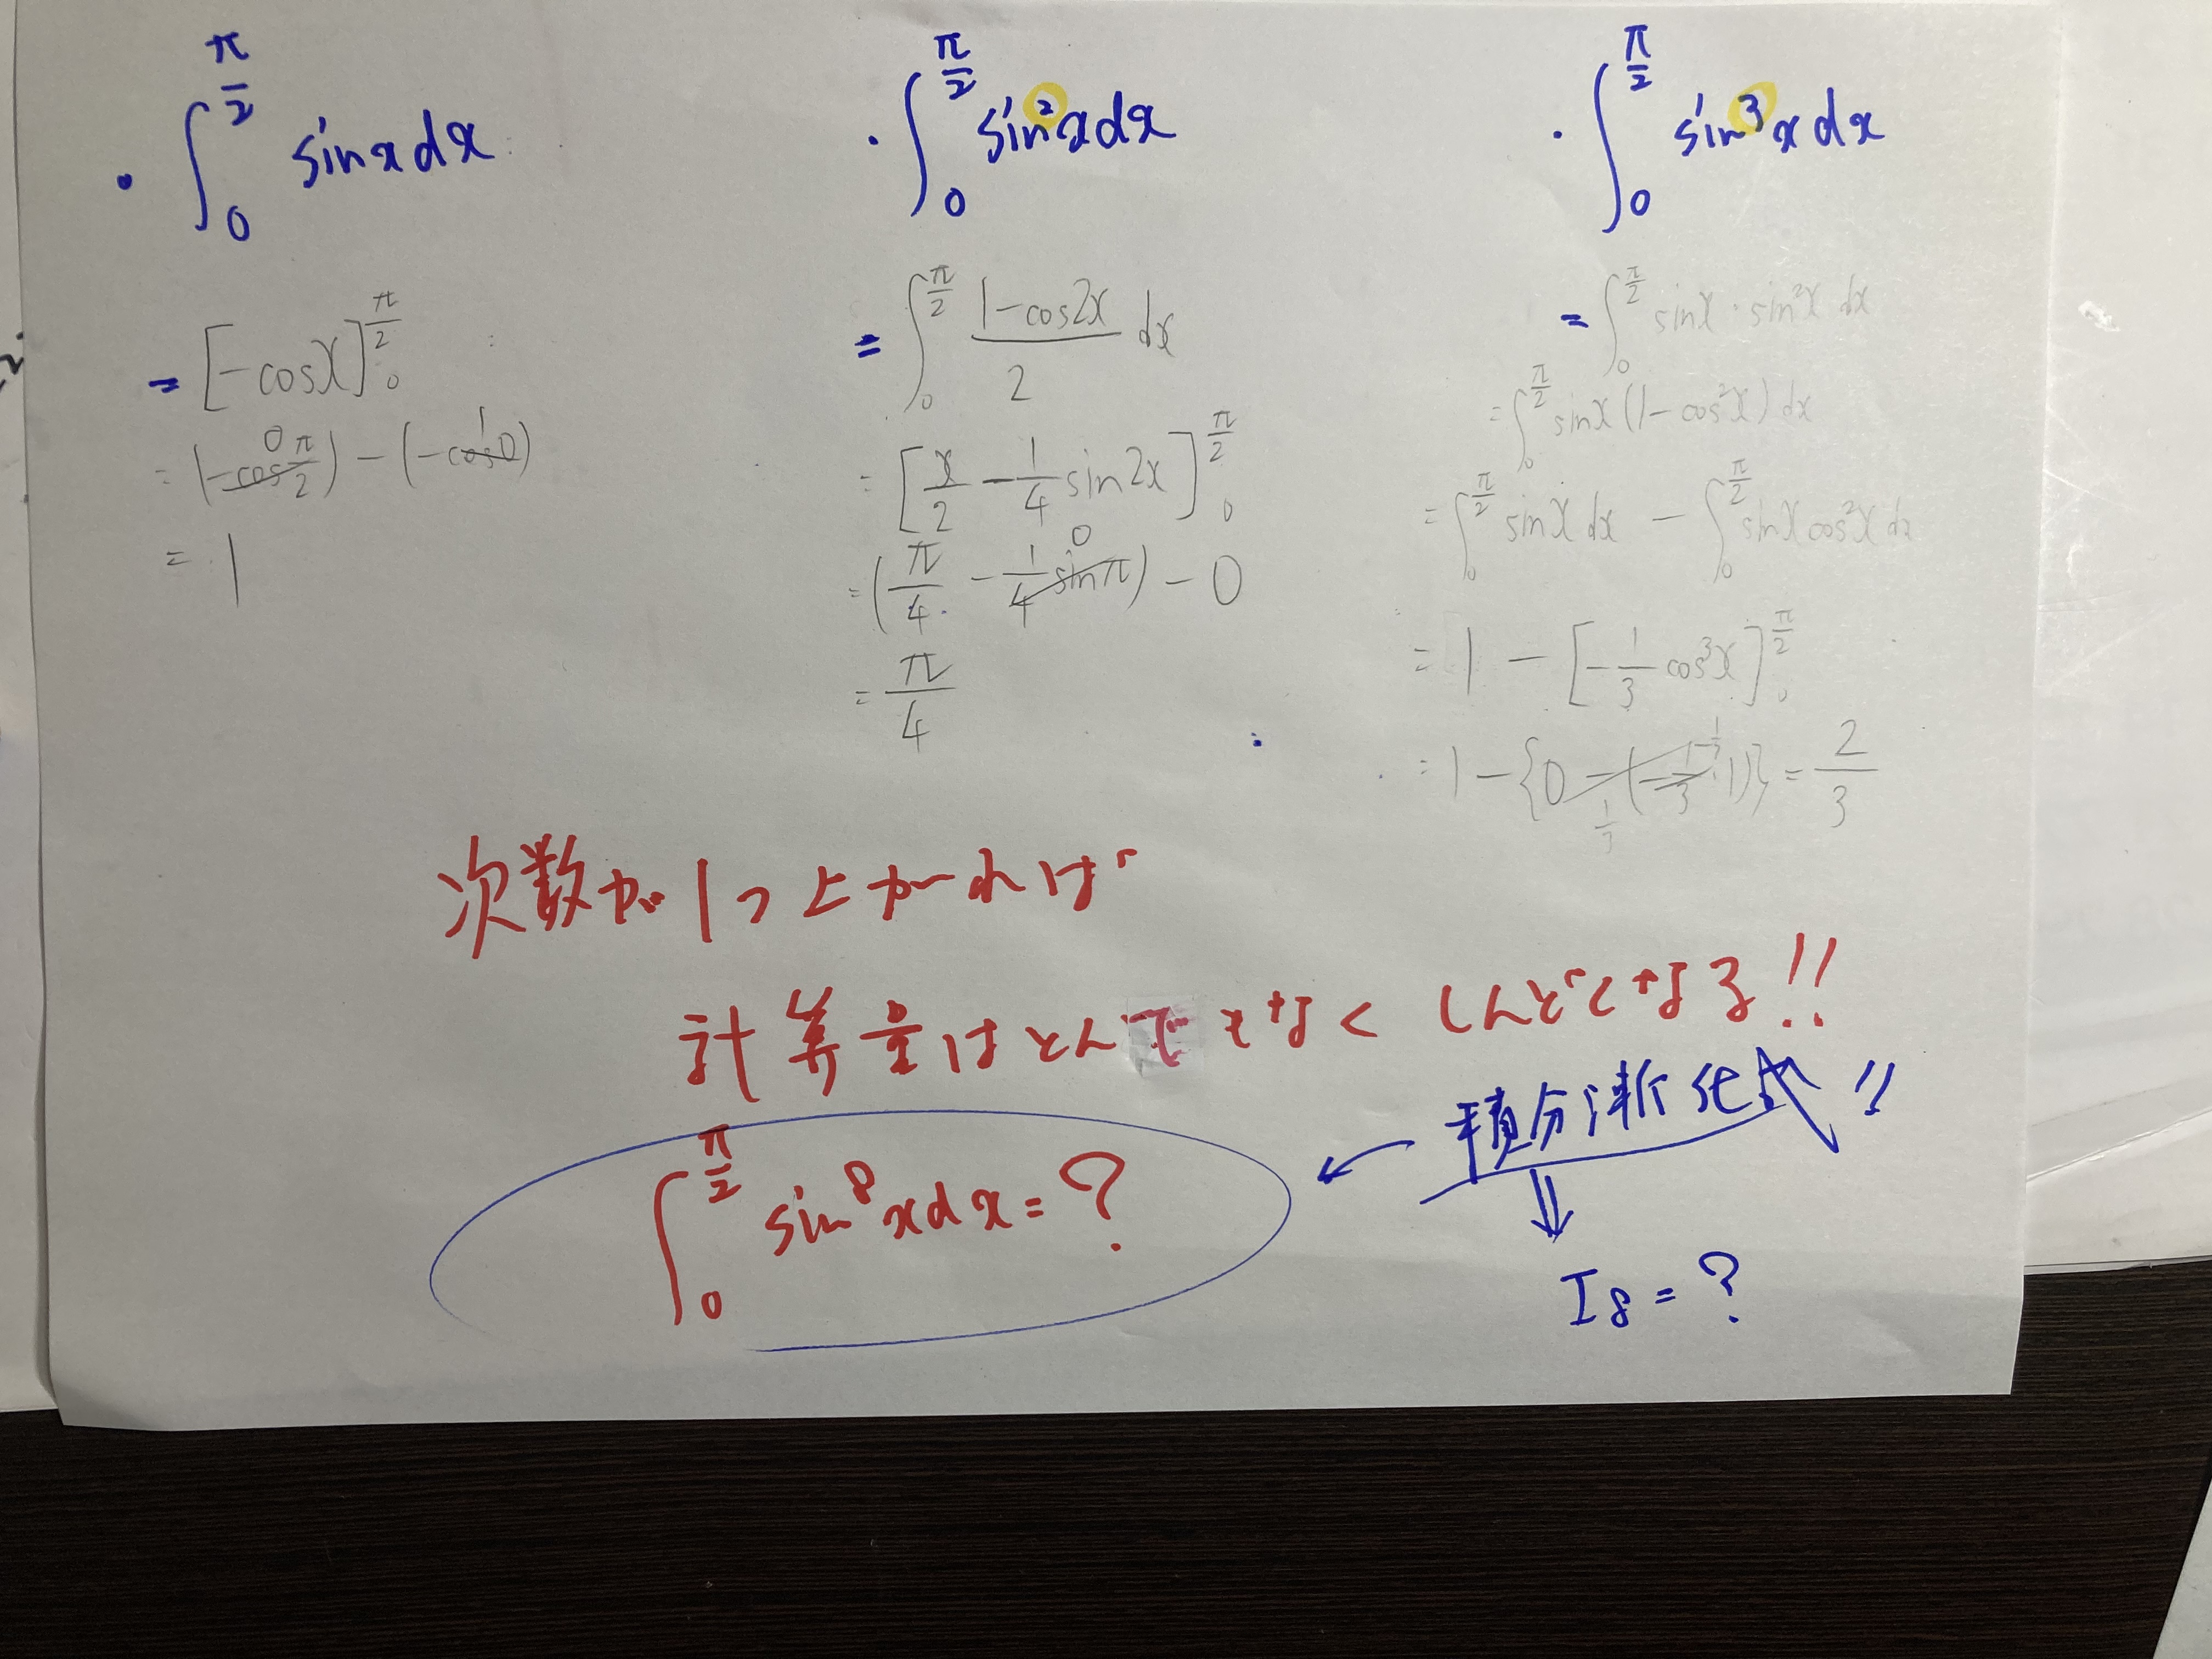 ・∫₀^{π/2} sinx dx
= [-cosx]₀^{π/2}
= (-cos π/2) - (-cos0)
= 1
・∫₀^{π/2} sin²x dx
= ∫₀^{π/2} (1-cos2x)/2 dx
= [x/2 - 1/4 sin2x]₀^{π/2}
= (π/4 - 1/4 sinπ) - 0
= π/4
・∫₀^{π/2} sin³x dx
= ∫₀^{π/2} sinx・sin²x dx
= ∫₀^{π/2} sinx(1-cos²x) dx
= ∫₀^{π/2} sinx dx - ∫₀^{π/2} sinx cos²x dx
= 1 - [-1/3 cos³x]₀^{π/2}
= 1 - {0 - (-1/3・1)} = 2/3
次数が1つ上がれば
計算量はとんでもなく しんどくなる!!
積分漸化式!!
∫₀^{π/2} sin⁸x dx = ?
I₈ = ?